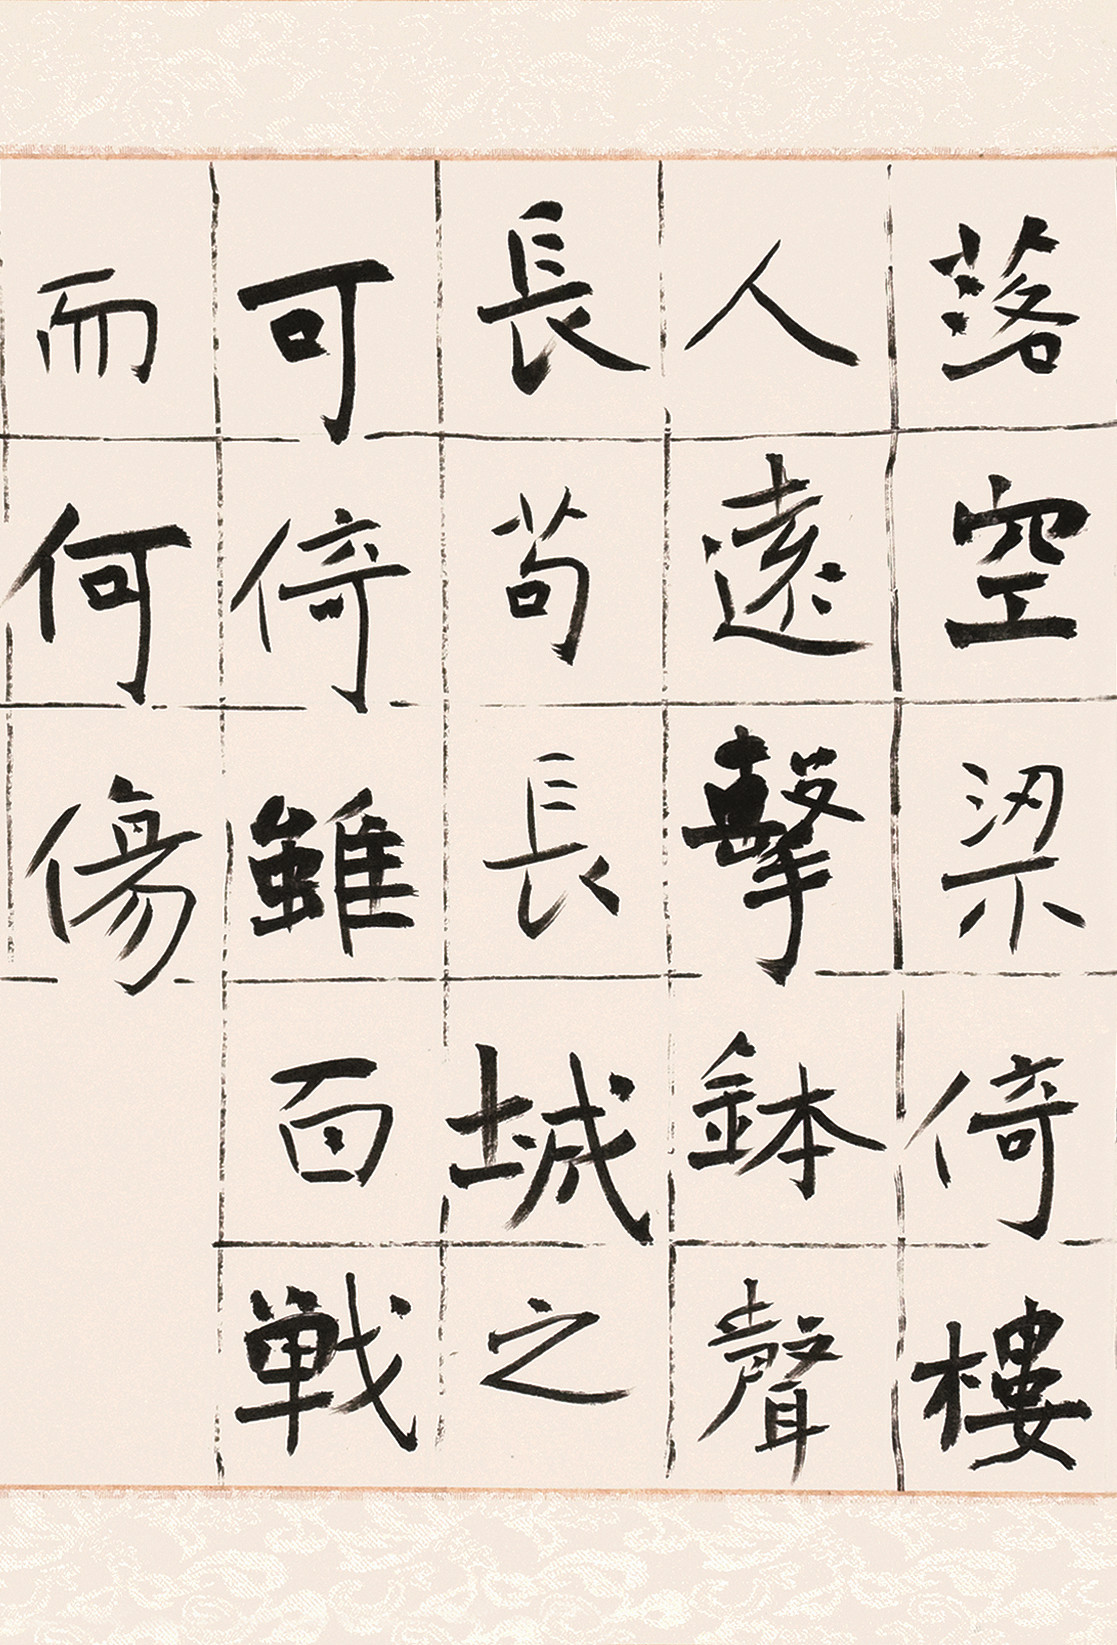 落空梁倚樓
人遠擊鉢聲
長苟長城之
可倚雖百戦
而何傷